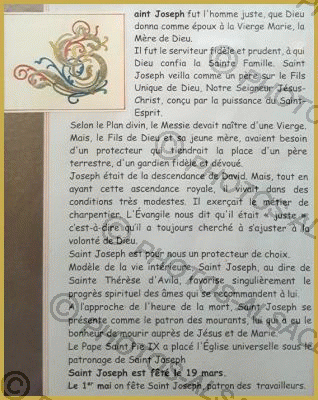 Saint Joseph fut l'homme juste, que Dieu
donna comme époux à la Vierge Marie, la
Mère de Dieu.
Il fut le serviteur fidèle et prudent, à qui
Dieu confia la Sainte Famille. Saint
Joseph veilla comme un père sur le Fils
Unique de Dieu, Notre Seigneur Jésus-
Christ, conçu par la puissance du Saint-
Esprit.
Selon le Plan divin, le Messie devait naître d'une Vierge.
Mais, le Fils de Dieu et sa jeune mère, avaient besoin
d'un protecteur qui tiendrait la place d'un père
terrestre, d'un gardien fidèle et dévoué.
Joseph était de la descendance de David. Mais, tout en
ayant cette ascendance royale, il vivait dans des
conditions très modestes. Il exerçait le métier de
charpentier. L'Évangile nous dit qu'il était « juste »,
c'est-à-dire qu'il a toujours cherché à s'ajuster à la
volonté de Dieu.
Saint Joseph est pour nous un protecteur de choix.
Modèle de la vie intérieure, Saint Joseph, au dire de
Sainte Thérèse d'Avila, favorise singulièrement le
progrès spirituel des âmes qui se recommandent à lui.
A l'approche de l'heure de la mort, Saint Joseph se
présente comme le patron des mourants, lui qui a eu le
bonheur de mourir auprès de Jésus et de Marie.
Le Pape Saint Pie IX a placé l'Église universelle sous le
patronage de Saint Joseph
Saint Joseph est fêté le 19 mars.
Le 1er mai on fête Saint Joseph, patron des travailleurs.